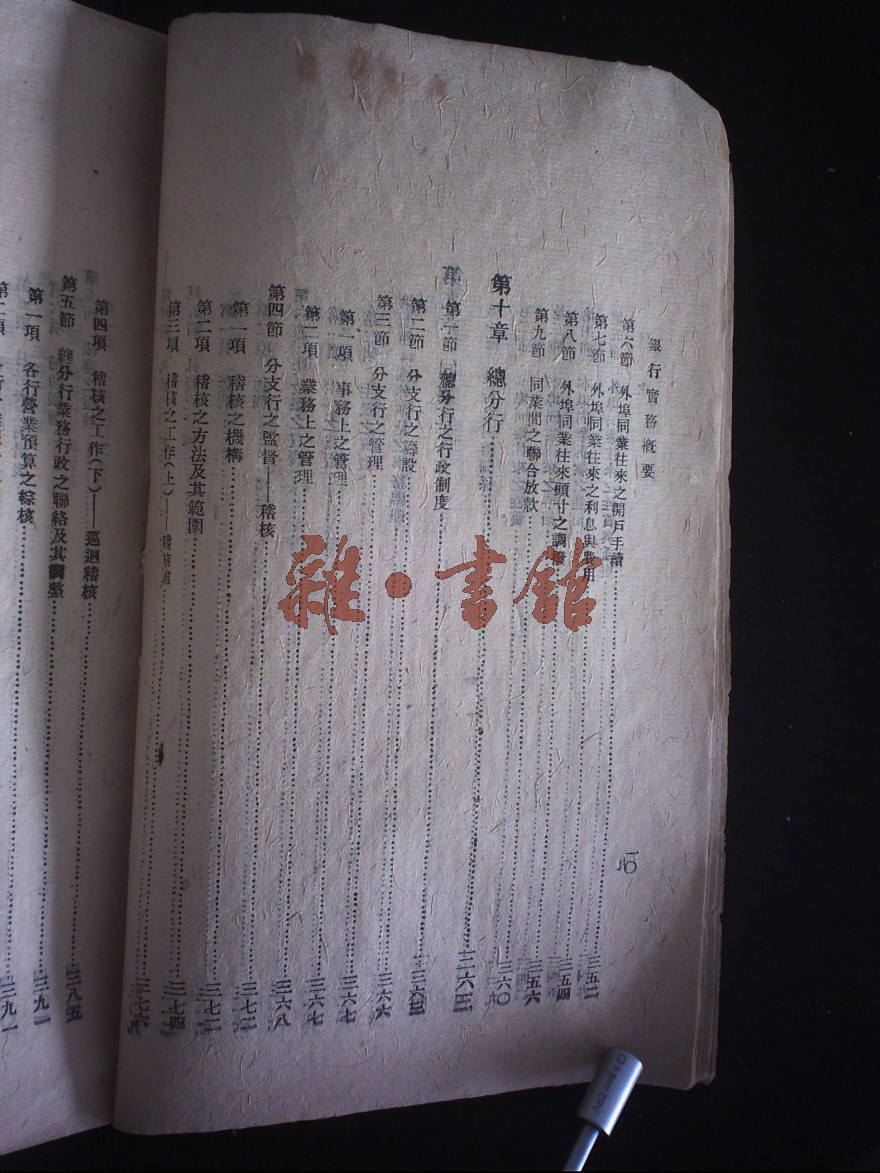 銀行實務概要
第六節 外埠同業往來之開戶手續
第七節 外埠同業往來之利息與費用 三五二
第八節 外埠同業往來頭寸之調撥 三五四
第九節 同業間之聯合放款 三五六
第十章 總分行 三六〇
第一節 總分行之行政制度
第二節 分支行之
第三節 分支行之管理 三六六
第一項 事務上之管理 三六七
第二項 業務上之管理 三六七
第四節 分支行之監督——稽核 三六八
第一項 稽核之機構 三七二
第二項 稽核之方法及其範圍 三七二
第三項 稽核之工作(上)——稽核 三七四
第四項 稽核之工作(下)——巡迴稽核
第五節 總分行業務行政之聯絡及其調整 三八五
第一項 各行營業預算之綜核 三九一
第二項
雜·書館